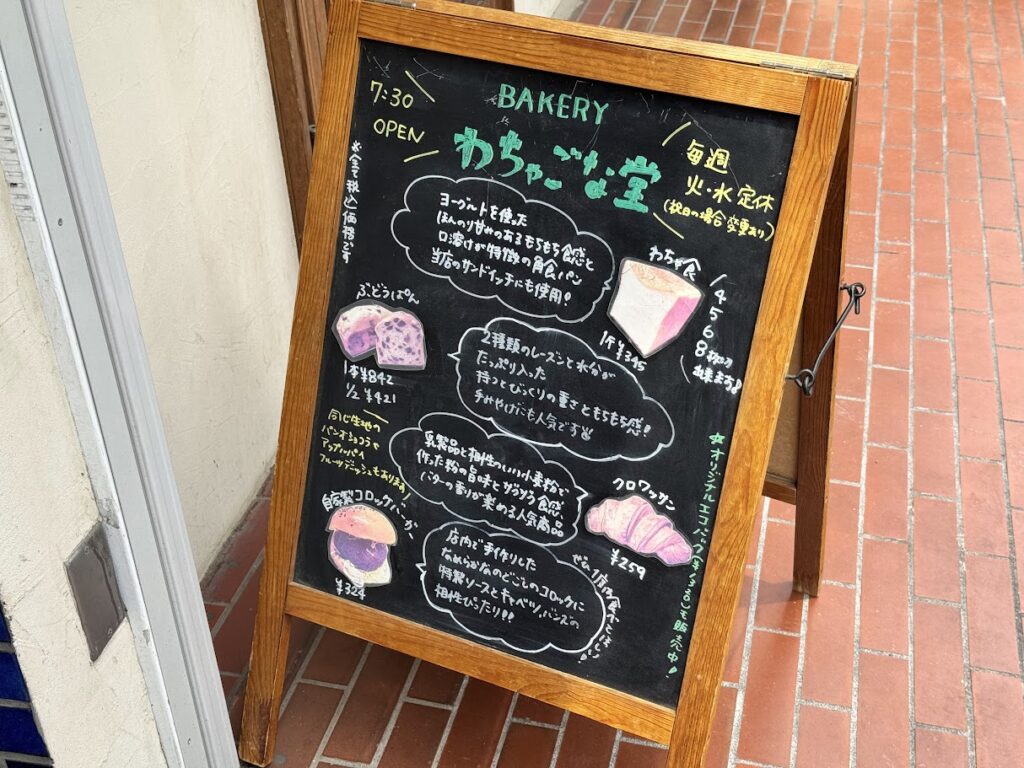 BAKERY
わちゃごなぁ堂
7:30
OPEN
※全て税込価格です
毎週
火・水 定休
(祝日の場合変更あり)
ヨーグルトを使った
ほんのり甘みのあるもちもち食感と
口溶けが特徴の角食パン
当店のサンドイッチにも使用!
わちゃ食
1斤 ¥345
4
5
6
8枚切
ぶどうぱん
1本 ¥842
1/2 ¥421
2種類のレーズンと水分が
たっぷり入った
持つとびっくりの重さともちもち感!
手みやげにも人気です
同じ生地の
パンオショコラや
アップルパイ
フルーツデニッシュもあります!
乳製品と相性のいい小麦粉で
作った粉の旨味とザクザク食感
バターの香りが楽める人気商品
クロワッサン
¥259
自家製コロッケバーガー
¥324
店内で手作りした
なめらかなのどごしのコロッケに
特製ソースとキャベツ、バンズの
相性ぴったり!!
ぜひ1度
☆オリジナルエコバッグ
も販売中!